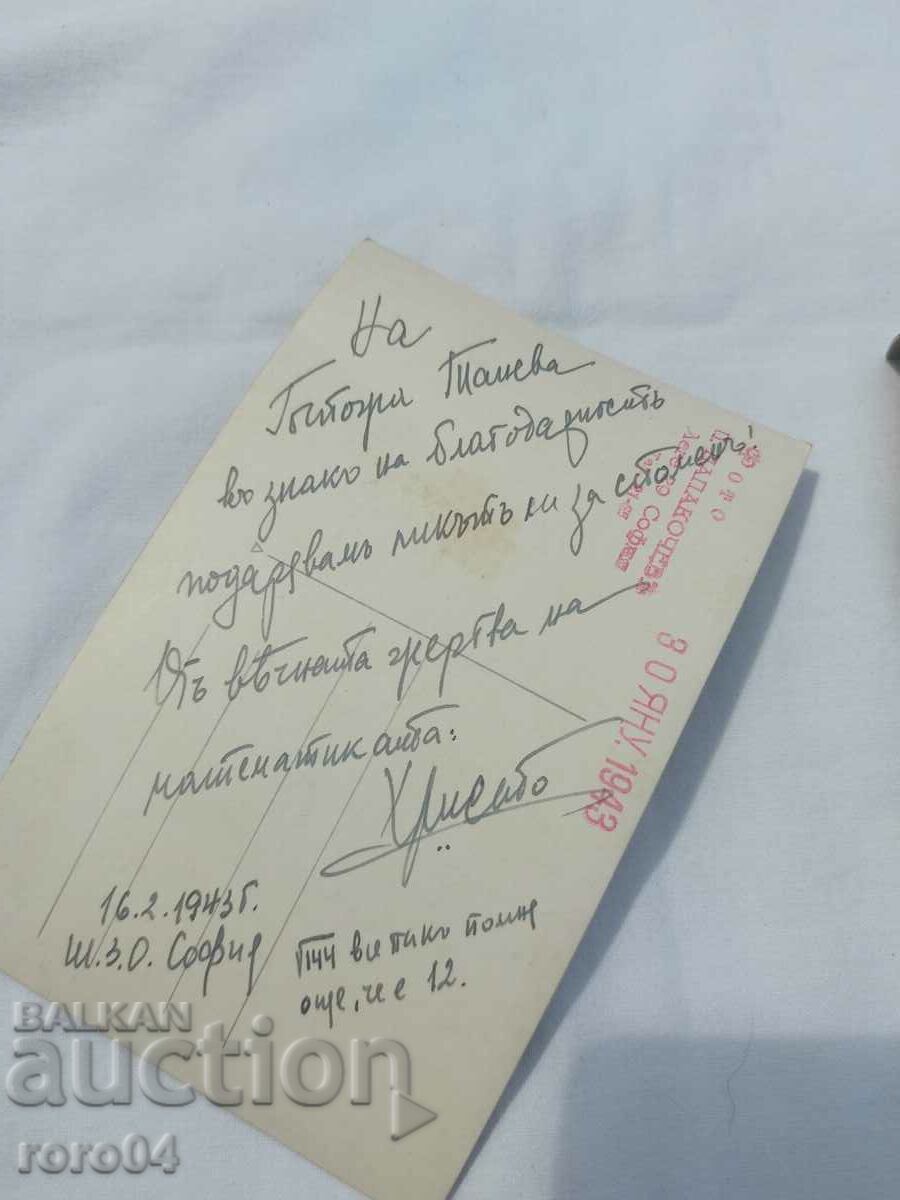 На
Танева
въ знакъ на благодарность
подарявамъ ликътъ ми за споменъ!
Отъ вѣчната жертва на
математиката:
Христо
16.2.1943 г.
Ш.З.О. София
още, че е 12.
Фото
София
30 ЯНУ. 1943
BALKAN
auction
roro04